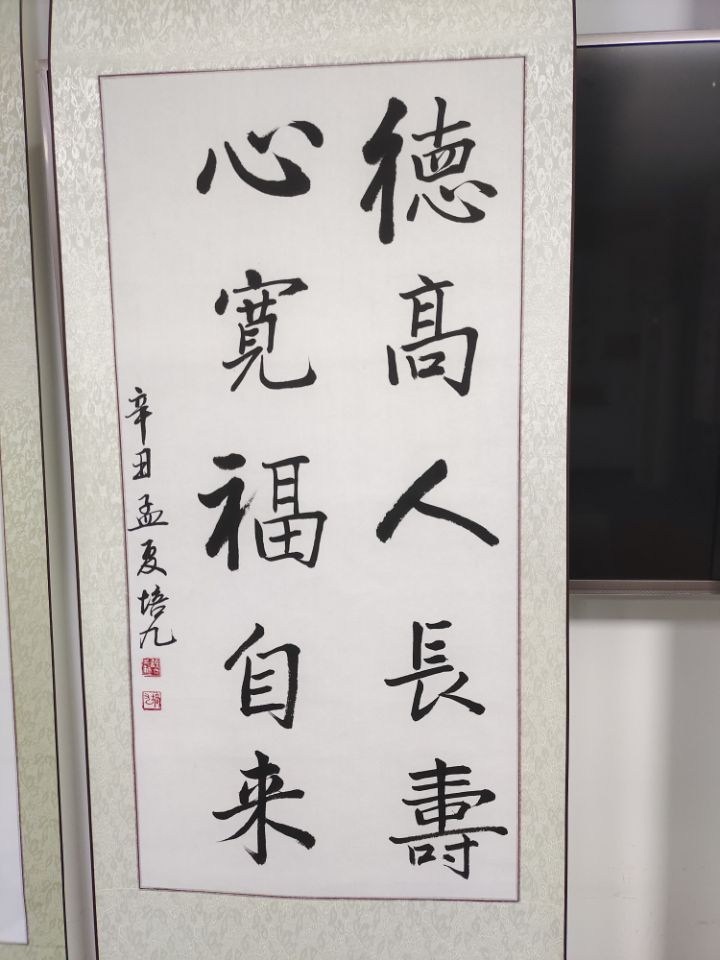 德高人長壽
心寬福自来
辛丑孟夏培九